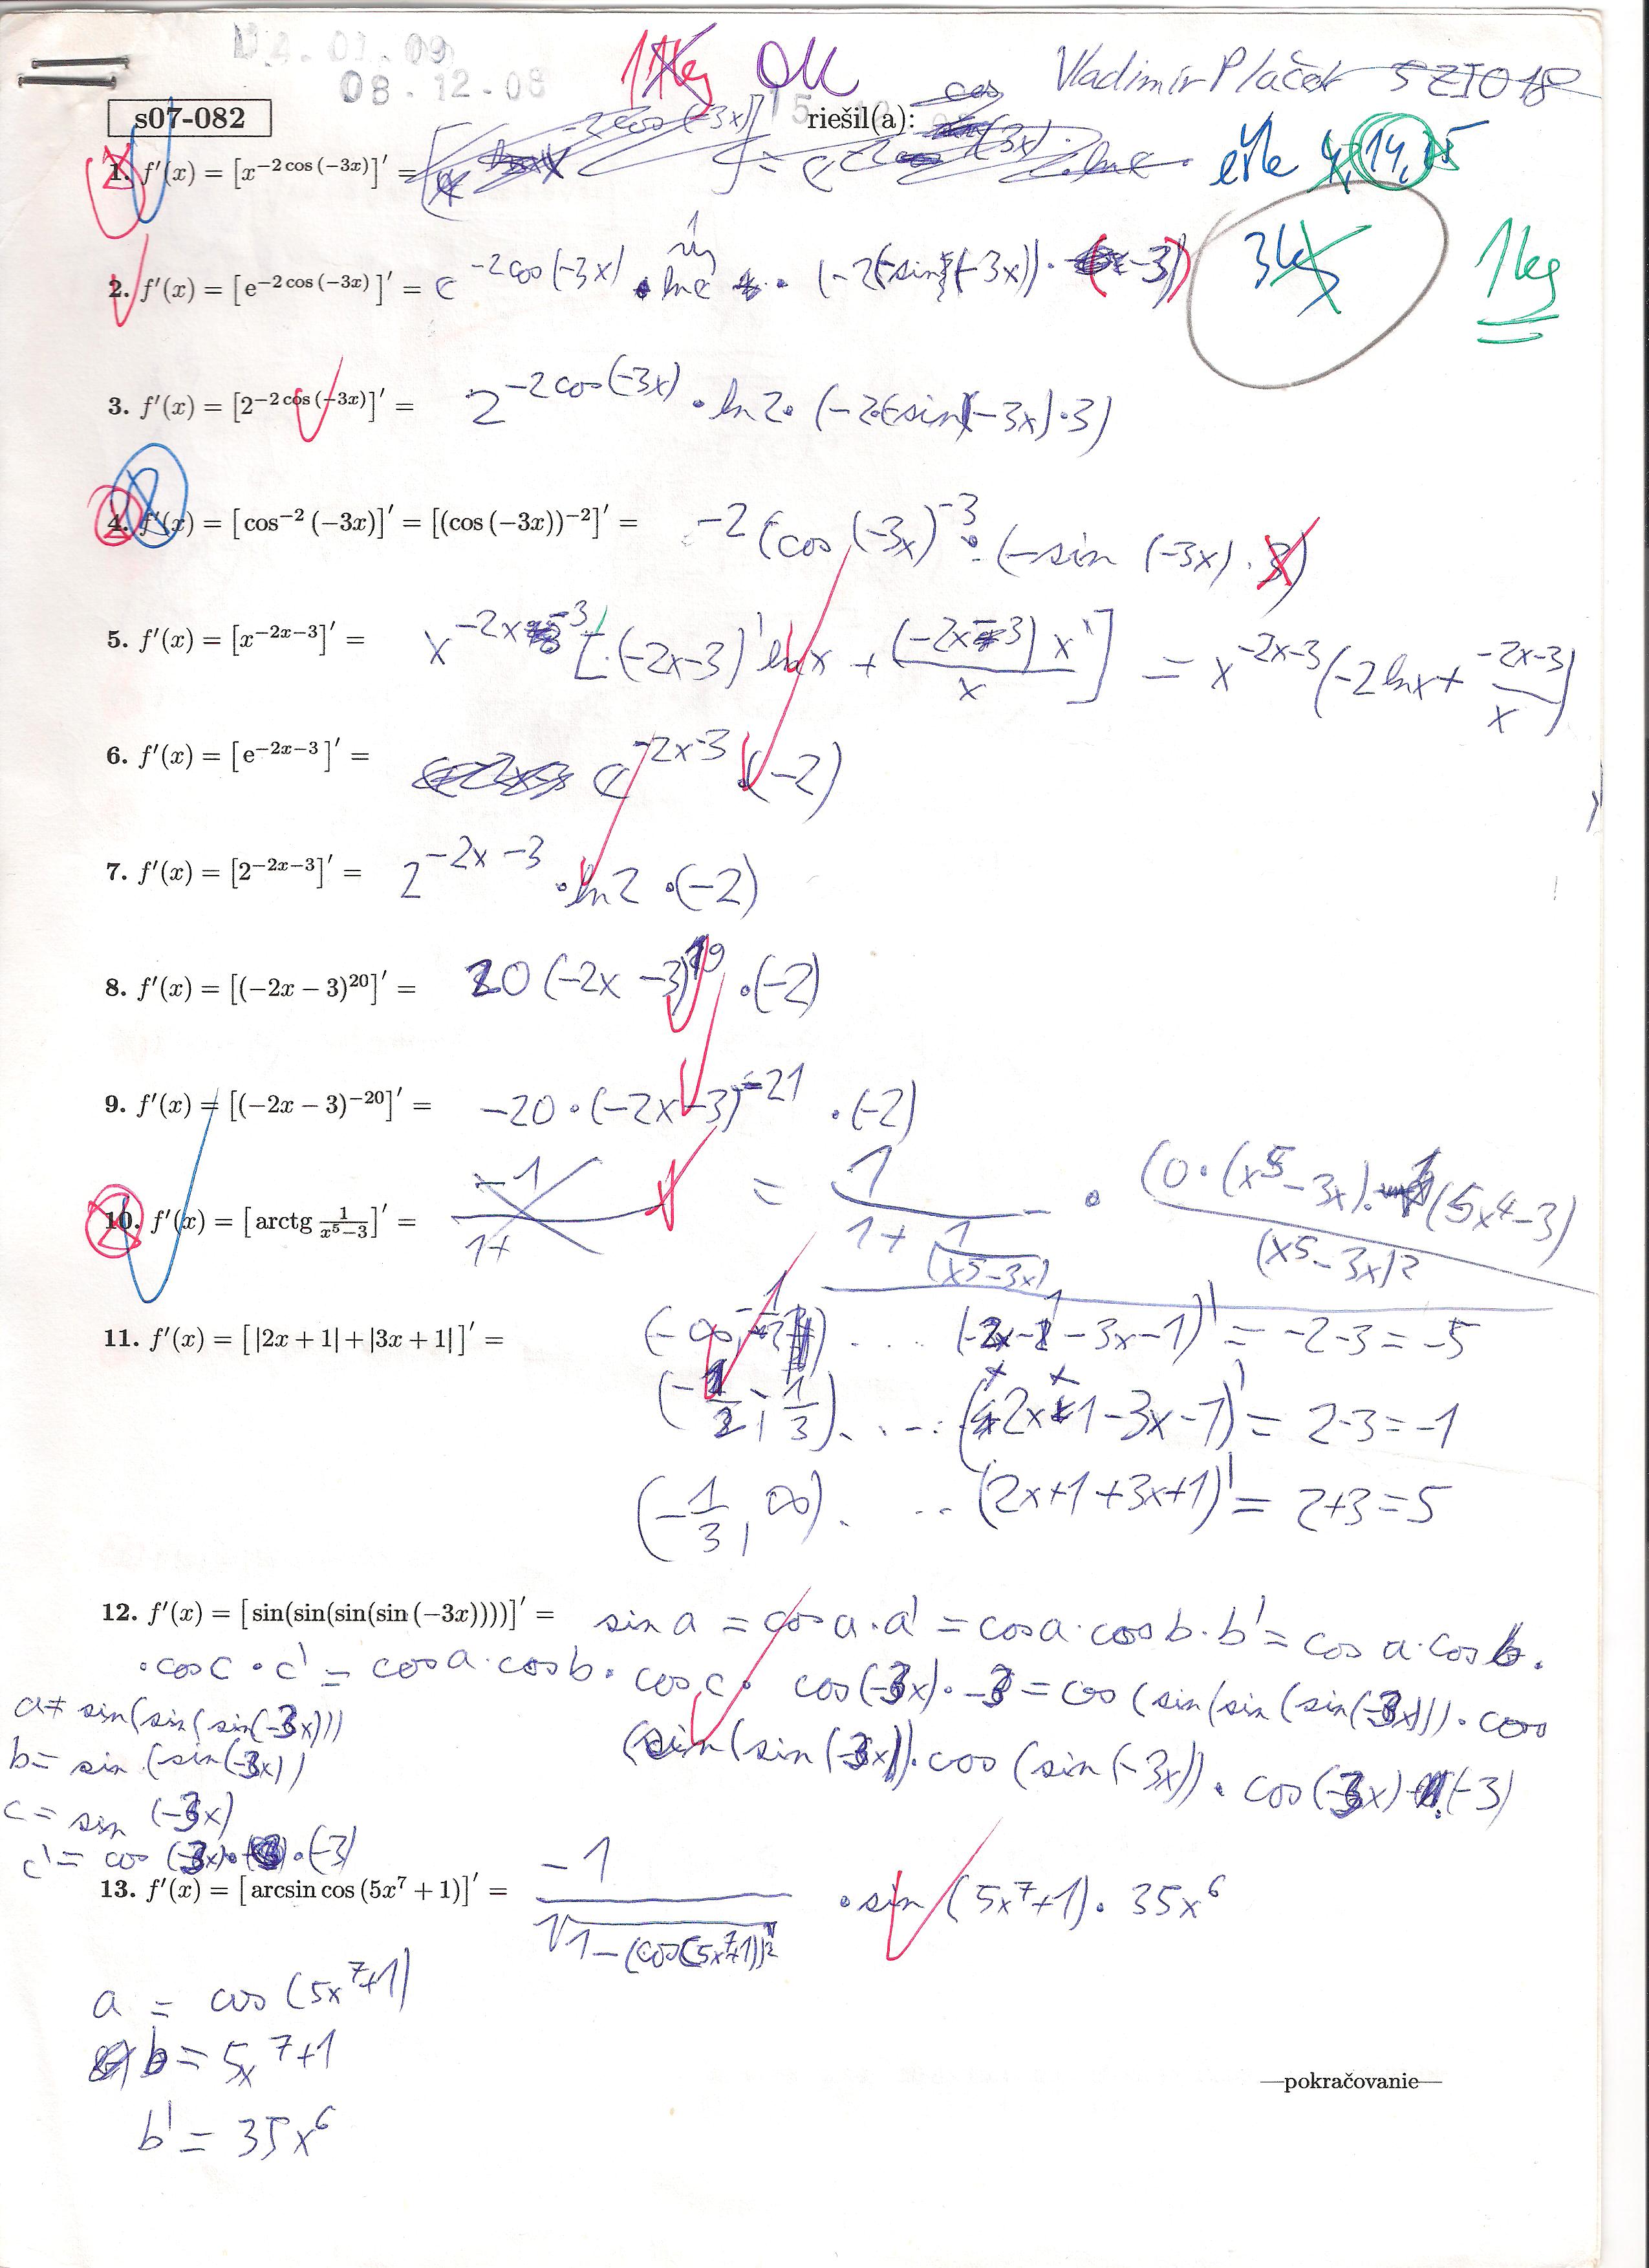 08.12.08
11kg OK Vladimír Plaček 5ZI018
s07-082 riešil(a):
1. f′(x) = [x^{−2 cos (−3x)}]′ =
ešte 4, 14, 15
2. f′(x) = [e^{−2 cos (−3x)}]′ = e^{-2cos(-3x)} · ln e · (-2(-sin(-3x)) · (-3))
3kg 1kg
3. f′(x) = [2^{−2 cos (−3x)}]′ = 2^{-2cos(-3x)} · ln2 · (-2(-sin(-3x)·3)
4. f′(x) = [cos^{−2} (−3x)]′ = [(cos (−3x))^{−2}]′ = -2(cos(-3x)^{-3} · (-sin (-3x) · 3)
5. f′(x) = [x^{−2x−3}]′ = x^{-2x-3} [·(-2x-3)' ln x + \frac{(-2x-3) x'}{x}] = x^{-2x-3}(-2lnx + \frac{-2x-3}{x})
6. f′(x) = [e^{−2x−3}]′ = e^{-2x-3} · (-2)
7. f′(x) = [2^{−2x−3}]′ = 2^{-2x-3} · ln2 · (-2)
8. f′(x) = [(−2x − 3)^{20}]′ = 20(-2x-3)^{19} · (-2)
9. f′(x) = [(−2x − 3)^{−20}]′ = -20·(-2x-3)^{-21} · (-2)
10. f′(x) = [arctg \frac{1}{x^5−3}]′ = \frac{-1}{1+} = \frac{1}{1+\frac{1}{(x^5-3x)}} · \frac{(0·(x^5-3x)·1(5x^4-3)}{(x^5-3x)^2}
11. f′(x) = [|2x + 1| + |3x + 1|]′ = (-∞, -\frac{1}{2}) ... (-2x-1-3x-1)' = -2-3 = -5
(-\frac{1}{2}; \frac{1}{3}) ... (+2x+1-3x-1)' = 2-3 = -1
(-\frac{1}{3}, ∞) ... (2x+1+3x+1)' = 2+3 = 5
12. f′(x) = [sin(sin(sin(sin (−3x))))]′ = sin a = cos a · a' = cos a · cos b · b' = cos a · cos b ·
· cos c · c' = cos a · cos b · cos c · cos(-3x) · -3 = cos (sin(sin (sin(-3x))) · cos
(sin(sin(-3x)) · cos (sin(-3x)) · cos(-3x) · (-3)
a = sin(sin(sin(-3x)))
b = sin (sin(-3x))
c = sin (-3x)
c' = cos (-3x) · (-3)
13. f′(x) = [arcsin cos (5x^7 + 1)]′ = \frac{-1}{\sqrt{1-(cos(5x^7+1))^2}} · sin (5x^7+1) · 35x^6
a = cos (5x^7+1)
b = 5x^7+1
b' = 35x^6
—pokračovanie—